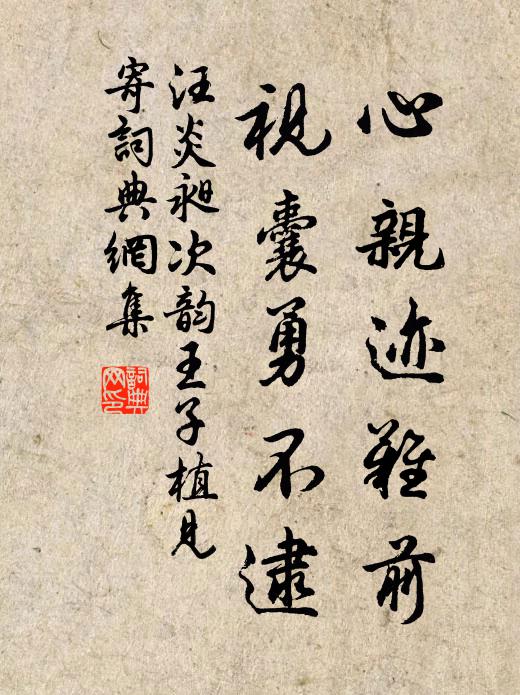 心親迹難前
視囊勇不逮
汪炎昶次韵王子植見
寄詞典網集
詞典
网印